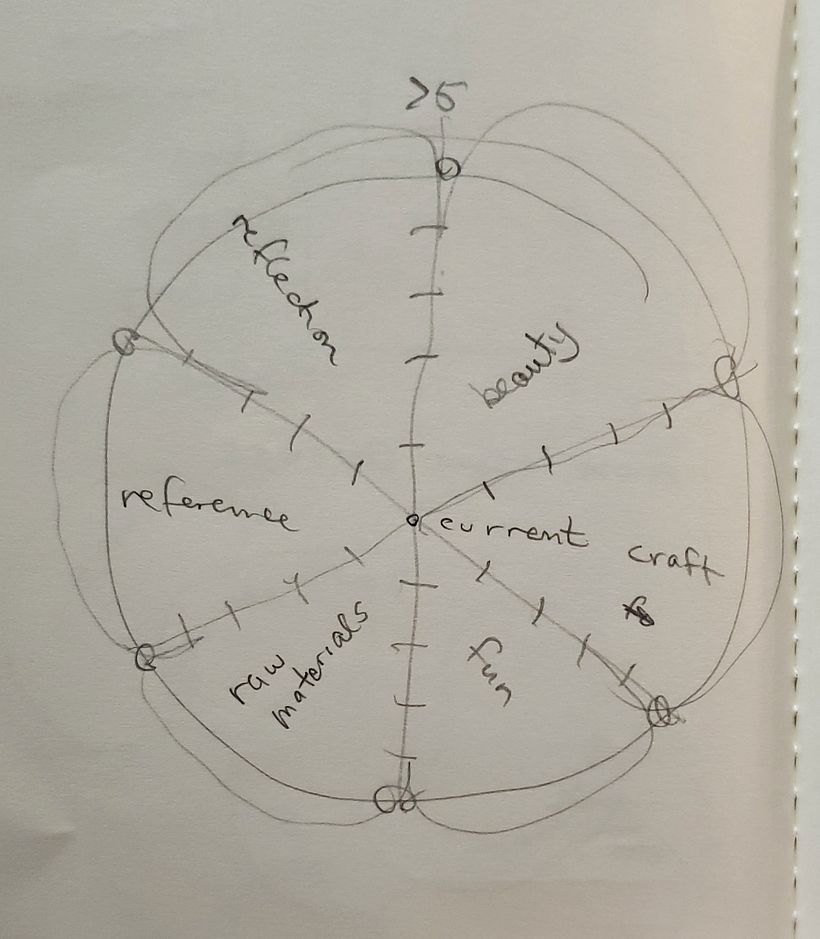 >5
reflection
beauty
reference
current
craft
raw
materials
fun